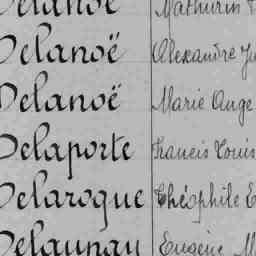 Delanoë Mathurin
Delanoë Alexandre
Delanoë Marie Ange
Delaporte Francis Louis
Delarogue Théophile
Delaunay Eugène M